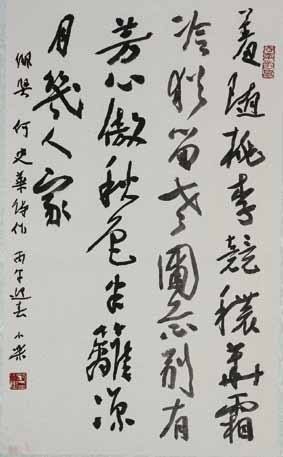 羞随桃李競穠華霜
冷猶留老圃忘别有
芳心傲秋色半籬涼
月幾人家
佩與何史華詩作丙午迎春小柴